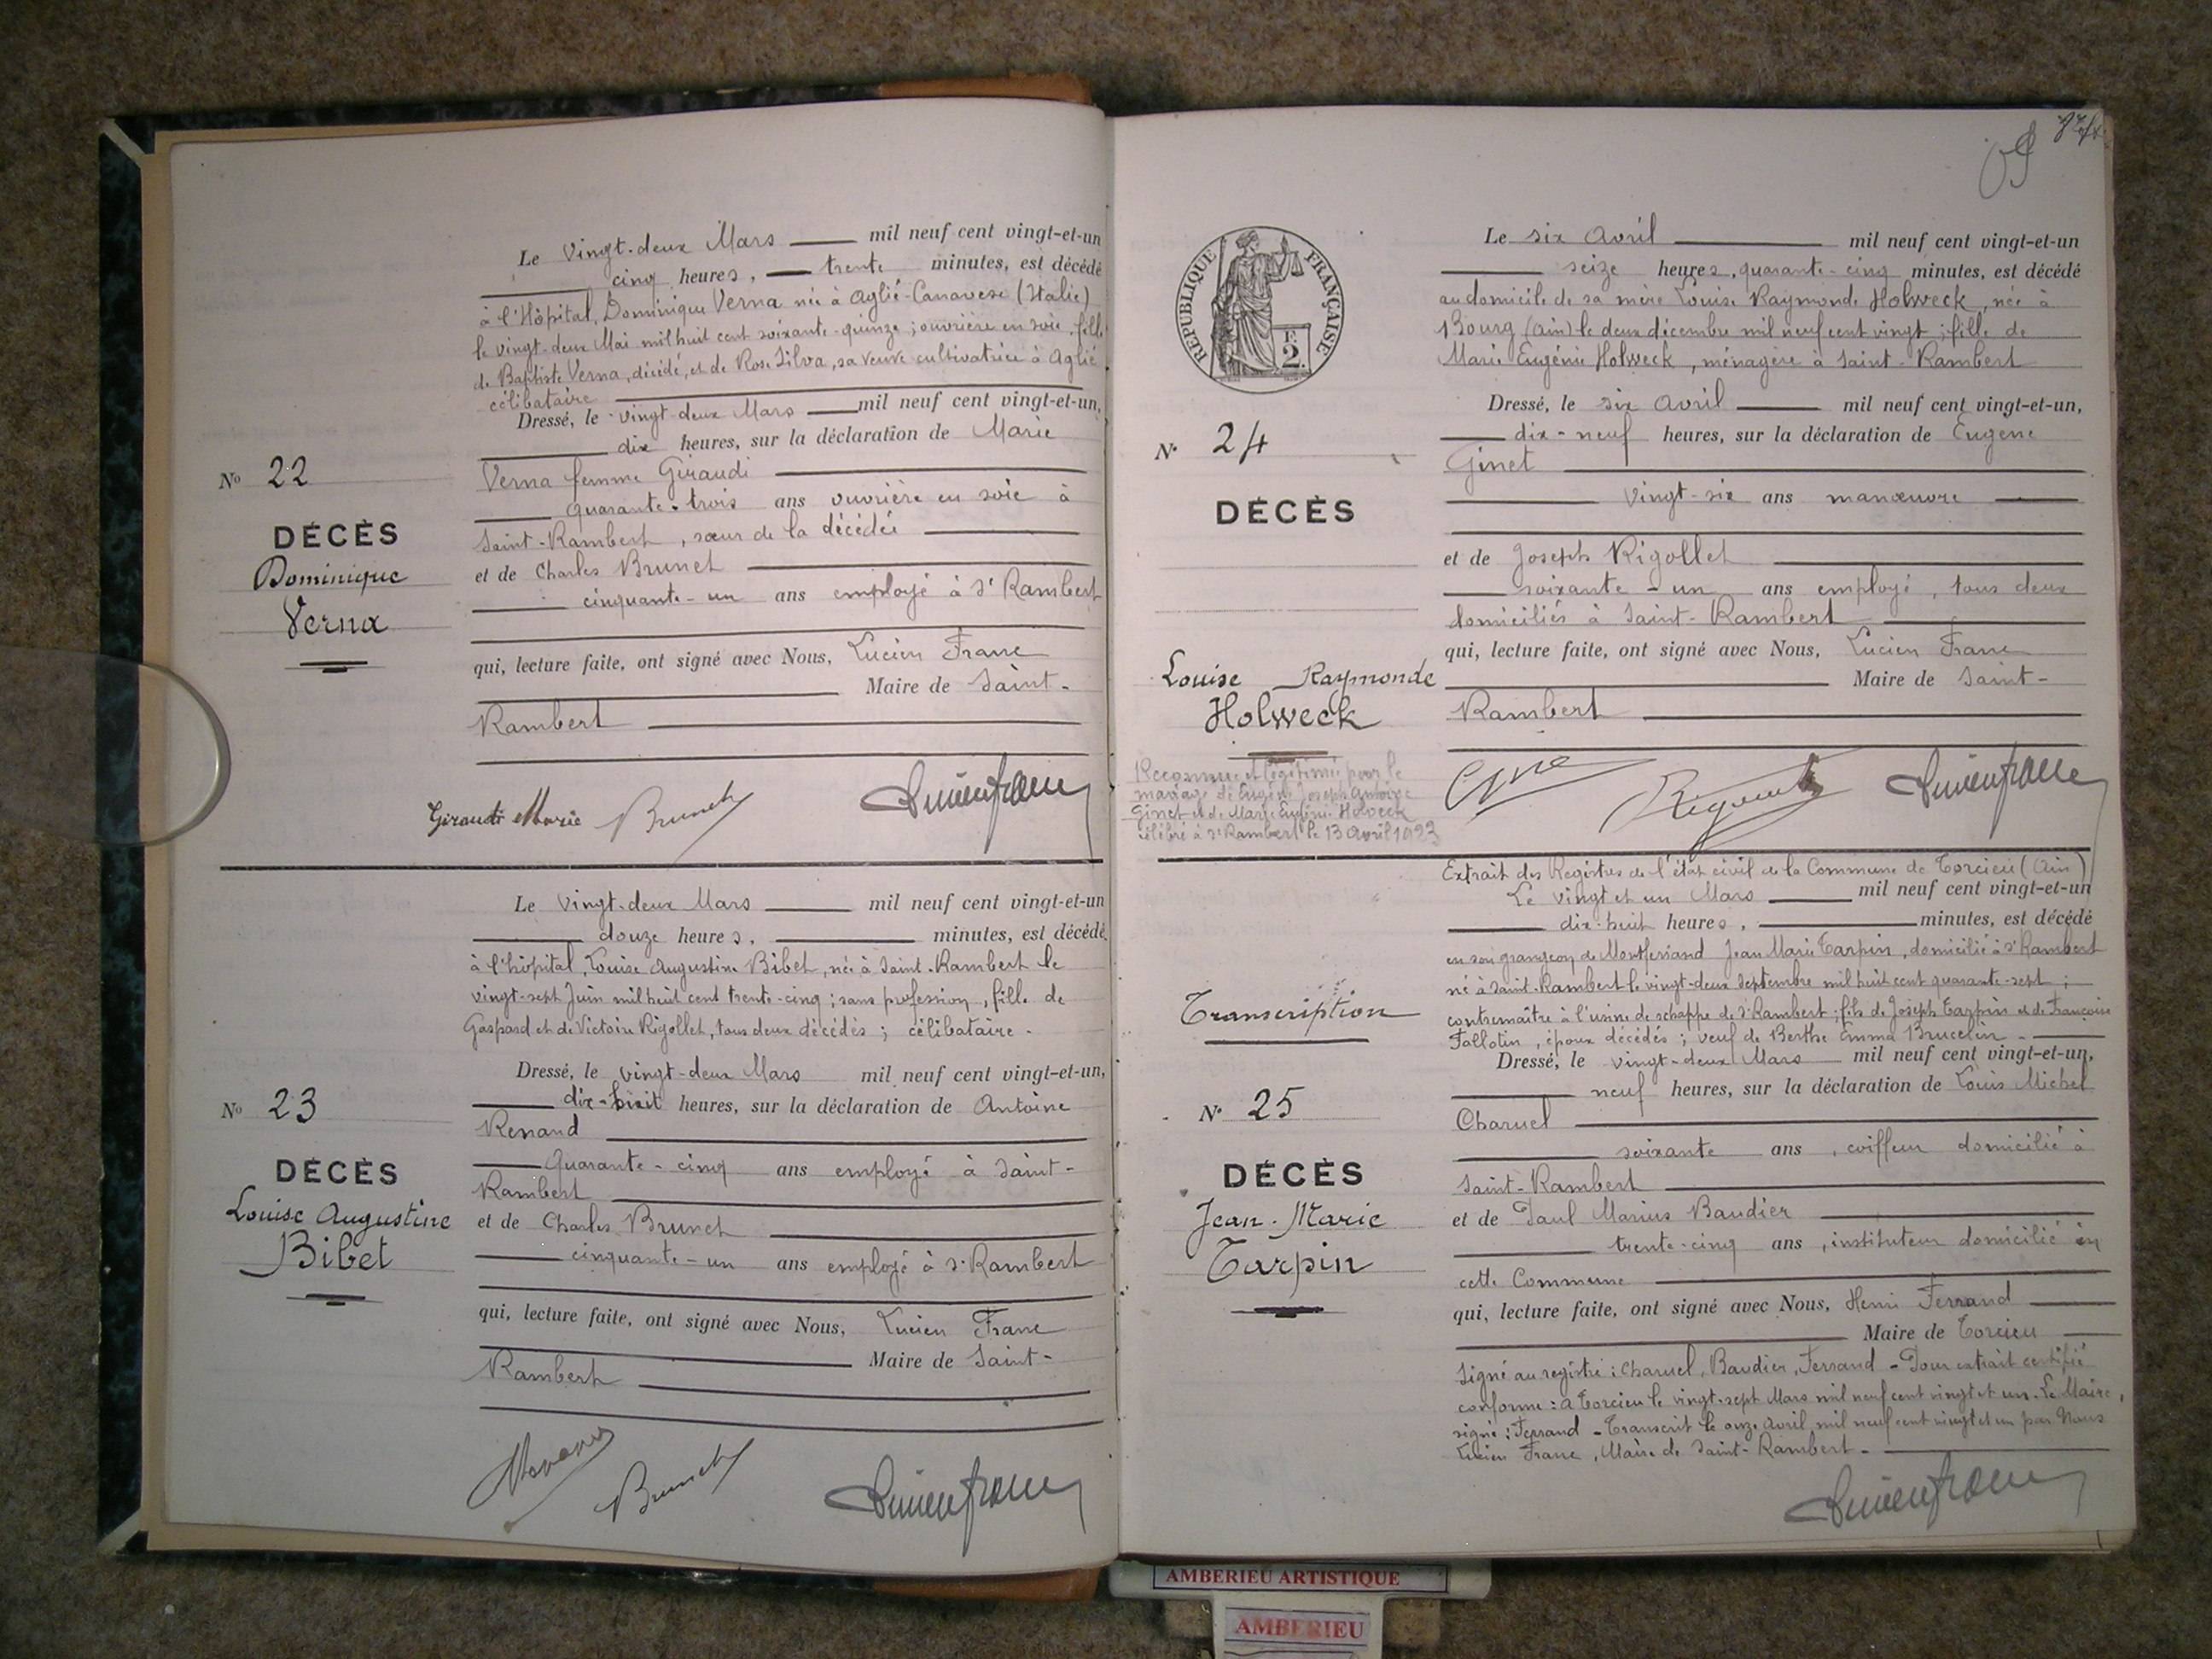 Le Vingt-deux Mars mil neuf cent vingt-et-un
cinq heures, trente minutes, est décédé
à l'Hôpital, Dominique Verna née à Agliè-Canavese (Italie)
le vingt-deux Mai mil huit cent soixante-quinze ; ouvrière en soie, fille
de Baptiste Verna, décédé, et de Rose Silva, sa veuve cultivatrice à Agliè
célibataire
Dressé, le vingt-deux Mars mil neuf cent vingt-et-un,
dix heures, sur la déclaration de Marie
Verna femme Giraudi
quarante-trois ans ouvrière en soie à
Saint-Rambert, sœur de la décédée
et de Charles Brunet
cinquante-un ans employé à St Rambert
qui, lecture faite, ont signé avec Nous, Lucien Franc
Maire de Saint-
Rambert
No 22
DÉCÈS
Dominique
Verna
Giraudi Marie Brunet Lucien franc
Le Vingt-deux Mars mil neuf cent vingt-et-un
douze heures, minutes, est décédé
à l'hôpital, Louise Augustine Bibet, née à Saint-Rambert le
vingt-sept Juin mil huit cent trente-cinq ; sans profession, fille de
Gaspard et de Victoire Rigollet, tous deux décédés ; célibataire.
Dressé, le vingt-deux Mars mil neuf cent vingt-et-un,
dix-huit heures, sur la déclaration de Antoine
Renand
Quarante-cinq ans employé à Saint-
Rambert
et de Charles Brunet
cinquante-un ans employé à St Rambert
qui, lecture faite, ont signé avec Nous, Lucien Franc
Maire de Saint-
Rambert
No 23
DÉCÈS
Louise Augustine
Bibet
Brunet Lucien franc
RÉPUBLIQUE FRANÇAISE
2
Le six Avril mil neuf cent vingt-et-un
seize heures, quarante-cinq minutes, est décédé
au domicile de sa mère Louise Raymonde Holweck, née à
Bourg (Ain) le deux décembre mil neuf cent vingt ; fille de
Marie Eugénie Holweck, ménagère à Saint-Rambert
Dressé, le six Avril mil neuf cent vingt-et-un,
dix-neuf heures, sur la déclaration de Eugène
Ginet
vingt-six ans manœuvre
et de Joseph Rigollet
soixante-un ans employé, tous deux
domiciliés à Saint-Rambert
qui, lecture faite, ont signé avec Nous, Lucien Franc
Maire de Saint-
Rambert
No 24
DÉCÈS
Louise Raymonde
Holweck
Reconnue et légitimée par le
mariage de Eugène Joseph Antoine
Ginet et de Marie Eugénie Holveck
célébré à St Rambert le 13 avril 1923
Lucien franc
Extrait des Registres de l'état civil de la Commune de Torcieu (Ain)
Le vingt et un Mars mil neuf cent vingt-et-un
dix-huit heures, minutes, est décédé
en son grangeon de Montferrand Jean Marie Tarpin, domicilié à St Rambert
né à Saint-Rambert le vingt-deux Septembre mil huit cent quarante-sept ;
contremaître à l'usine de schappe de St Rambert ; fils de Joseph Tarpin et de Françoise
Fallotin, époux décédés ; veuf de Berthe Emma Brucelin.
Dressé, le vingt-deux Mars mil neuf cent vingt-et-un,
neuf heures, sur la déclaration de Louis Michel
Charvel
soixante ans, coiffeur domicilié à
Saint-Rambert
et de Paul Marius Baudier
trente-cinq ans, instituteur domicilié en
cette Commune
qui, lecture faite, ont signé avec Nous, Henri Ferrand
Maire de Torcieu
Signé au registre : Charvel, Baudier, Ferrand - Pour extrait certifié
conforme : à Torcieu le vingt-sept Mars mil neuf cent vingt et un. Le Maire,
signé : Ferrand - Transcrit le onze Avril mil neuf cent vingt et un par Nous
Lucien Franc, Maire de Saint-Rambert.
Transcription
No 25
DÉCÈS
Jean-Marie
Tarpin
Lucien franc
AMBERIEU ARTISTIQUE
AMBERIEU